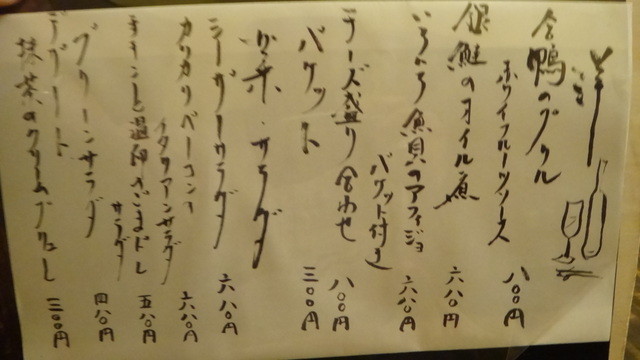 合鴨のグリル
ホワイフルーツソース 八〇〇円
銀鮭のオイル煮 六八〇円
いろいろ魚貝のアフィジョ
バケット付き 六八〇円
チーズ盛り合わせ 八〇〇円
バケット 三〇〇円
サラダ
シーザーサラダ 六八〇円
カリカリベーコン
イタリアンサラダ 六八〇円
チキンと温卵のごまドレ
サラダ 五八〇円
グリーンサラダ 四八〇円
デザート
抹茶のクリームブリュレ 三〇〇円